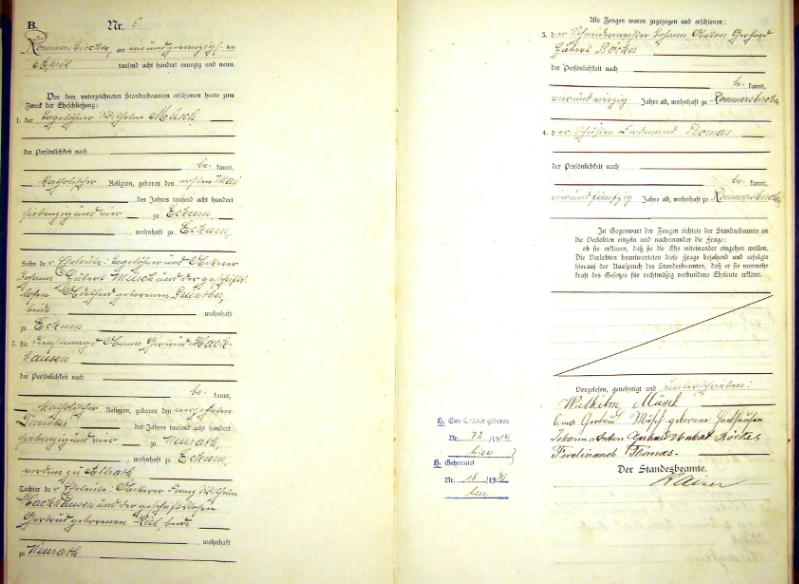 B.
Nr. 5
Rommerskirchen, am einundzwanzigsten
April tausend acht hundert neunzig und neun.
Vor dem unterzeichneten Standesbeamten erschienen heute zum
Zweck der Eheschließung:
1. der Tagelöhner Wilhelm Müsch
der Persönlichkeit nach
be kannt,
katholischer Religion, geboren den ersten Mai
des Jahres tausend acht hundert
siebenzig und vier zu Eckum,
, wohnhaft zu Eckum,
Sohn der Eheleute: Tagelöhner und Ackerer
Johann Hubert Müsch und der geschäfts-
losen geborenen
beide wohnhaft
zu Eckum
2. die Dienstmagd Anna Gertrud Hack-
hausen
der Persönlichkeit nach
be kannt,
katholischer Religion, geboren den vierzehnten
Dezember des Jahres tausend acht hundert
siebenzig und vier zu Neurath,
, wohnhaft zu Eckum,
zu
Tochter der Eheleute: Ackerer Franz Wilhelm
Hackhausen und der geschäftslosen
Gertrud geborenen beide
wohnhaft
zu Neurath
Als Zeugen waren zugezogen und erschienen:
3. der Schneidermeister Johann Anton Gerhard
Hubert Röcker
der Persönlichkeit nach
be kannt,
vierundvierzig Jahre alt, wohnhaft zu Rommerskirchen,
4. der Schuster Ferdinand Thomas
der Persönlichkeit nach
be kannt,
vierundfünfzig Jahre alt, wohnhaft zu Rommerskirchen
In Gegenwart der Zeugen richtete der Standesbeamte an
die Verlobten einzeln und nacheinander die Frage:
ob sie erklären, daß sie die Ehe miteinander eingehen wollen.
Die Verlobten beantworteten diese Frage bejahend und erfolgte
hierauf der Ausspruch des Standesbeamten, daß er sie nunmehr
kraft des Gesetzes für rechtmäßig verbundene Eheleute erkläre.
Vorgelesen, genehmigt und unterschrieben:
Wilhelm Müsch
Anna Gertrud Müsch geborene Hackhausen
Johann Anton Gerhard Hubert Röcker
Ferdinand Thomas.
Der Standesbeamte.
Eine Tochter geboren
Nr. 72/19
hier
Geheiratet
Nr. 18/19
hier